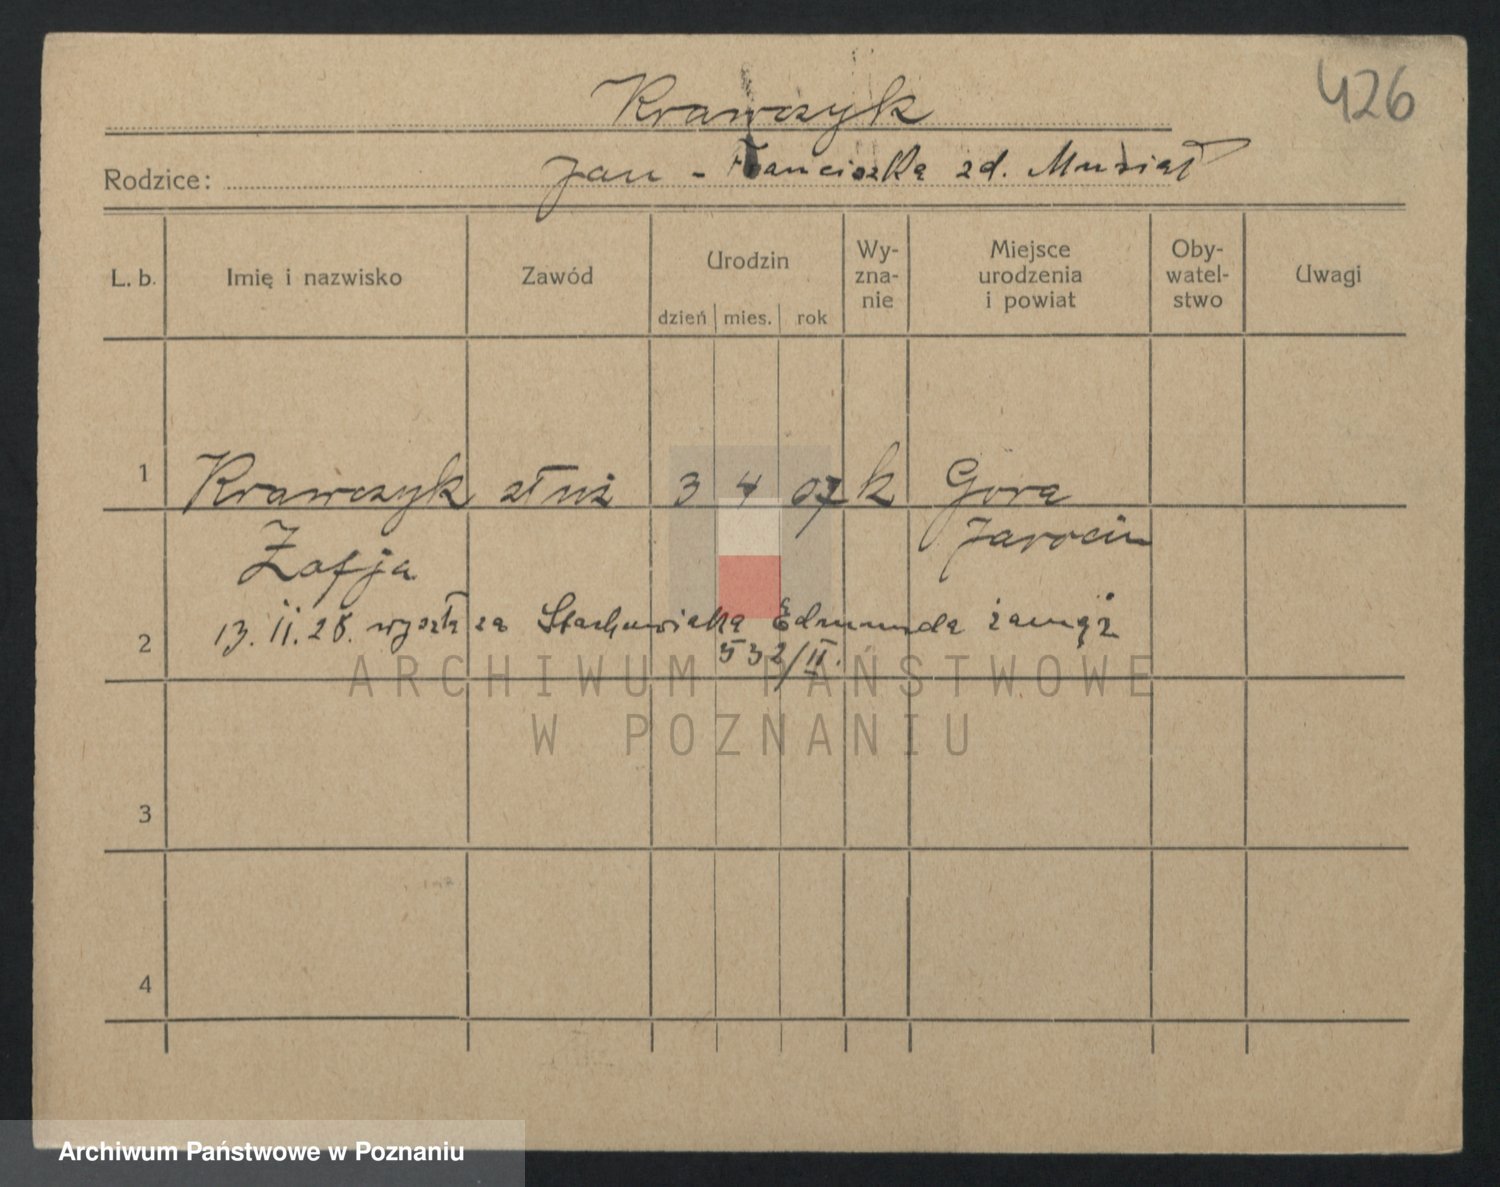 426
Krawczyk
Rodzice: Jan - Franciszka zd. Musiał
L. b. Imię i nazwisko Zawód Urodzin dzień mies. rok Wy-zna-nie Miejsce urodzenia i powiat Oby-watel-stwo Uwagi
1 Krawczyk służ 3 4 07 k Góra
Zofja Jarocin
13. II. 28. wyszła za Stachowiaka Edmunda zamąż
2 532/II.
3
4
ARCHIWUM PAŃSTWOWE
W POZNANIU
Archiwum Państwowe w Poznaniu